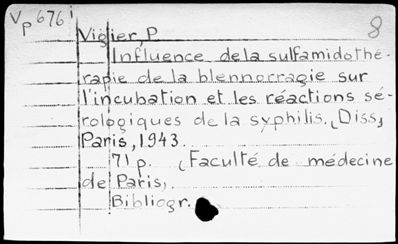 Vp 676 i
8
Vigier, P
Influence de la sulfamidothé-
rapie de la blennorragie sur
l'incubation et les réactions sé-
rologiques de la syphilis. (Diss)
Paris, 1943.
71 p. (Faculté de médecine
de Paris).
Bibliogr.